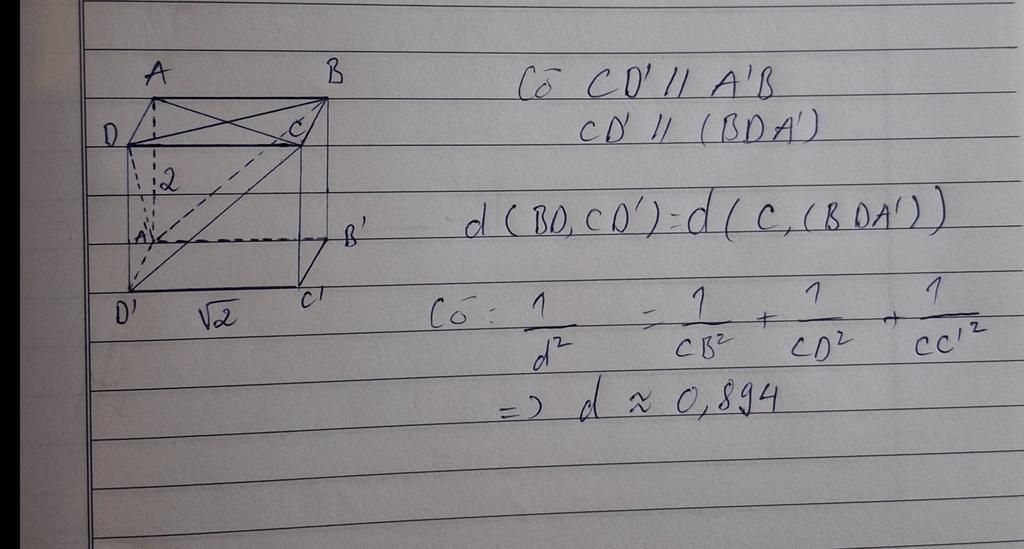 A B
D C
2
A' B'
D' C'
√2
Có CD' // A'B
CD' // (BDA')
d(BD, CD') = d(C, (BDA'))
Có: 1/d² = 1/CB² + 1/CD² + 1/CC'²
=> d ≈ 0,894